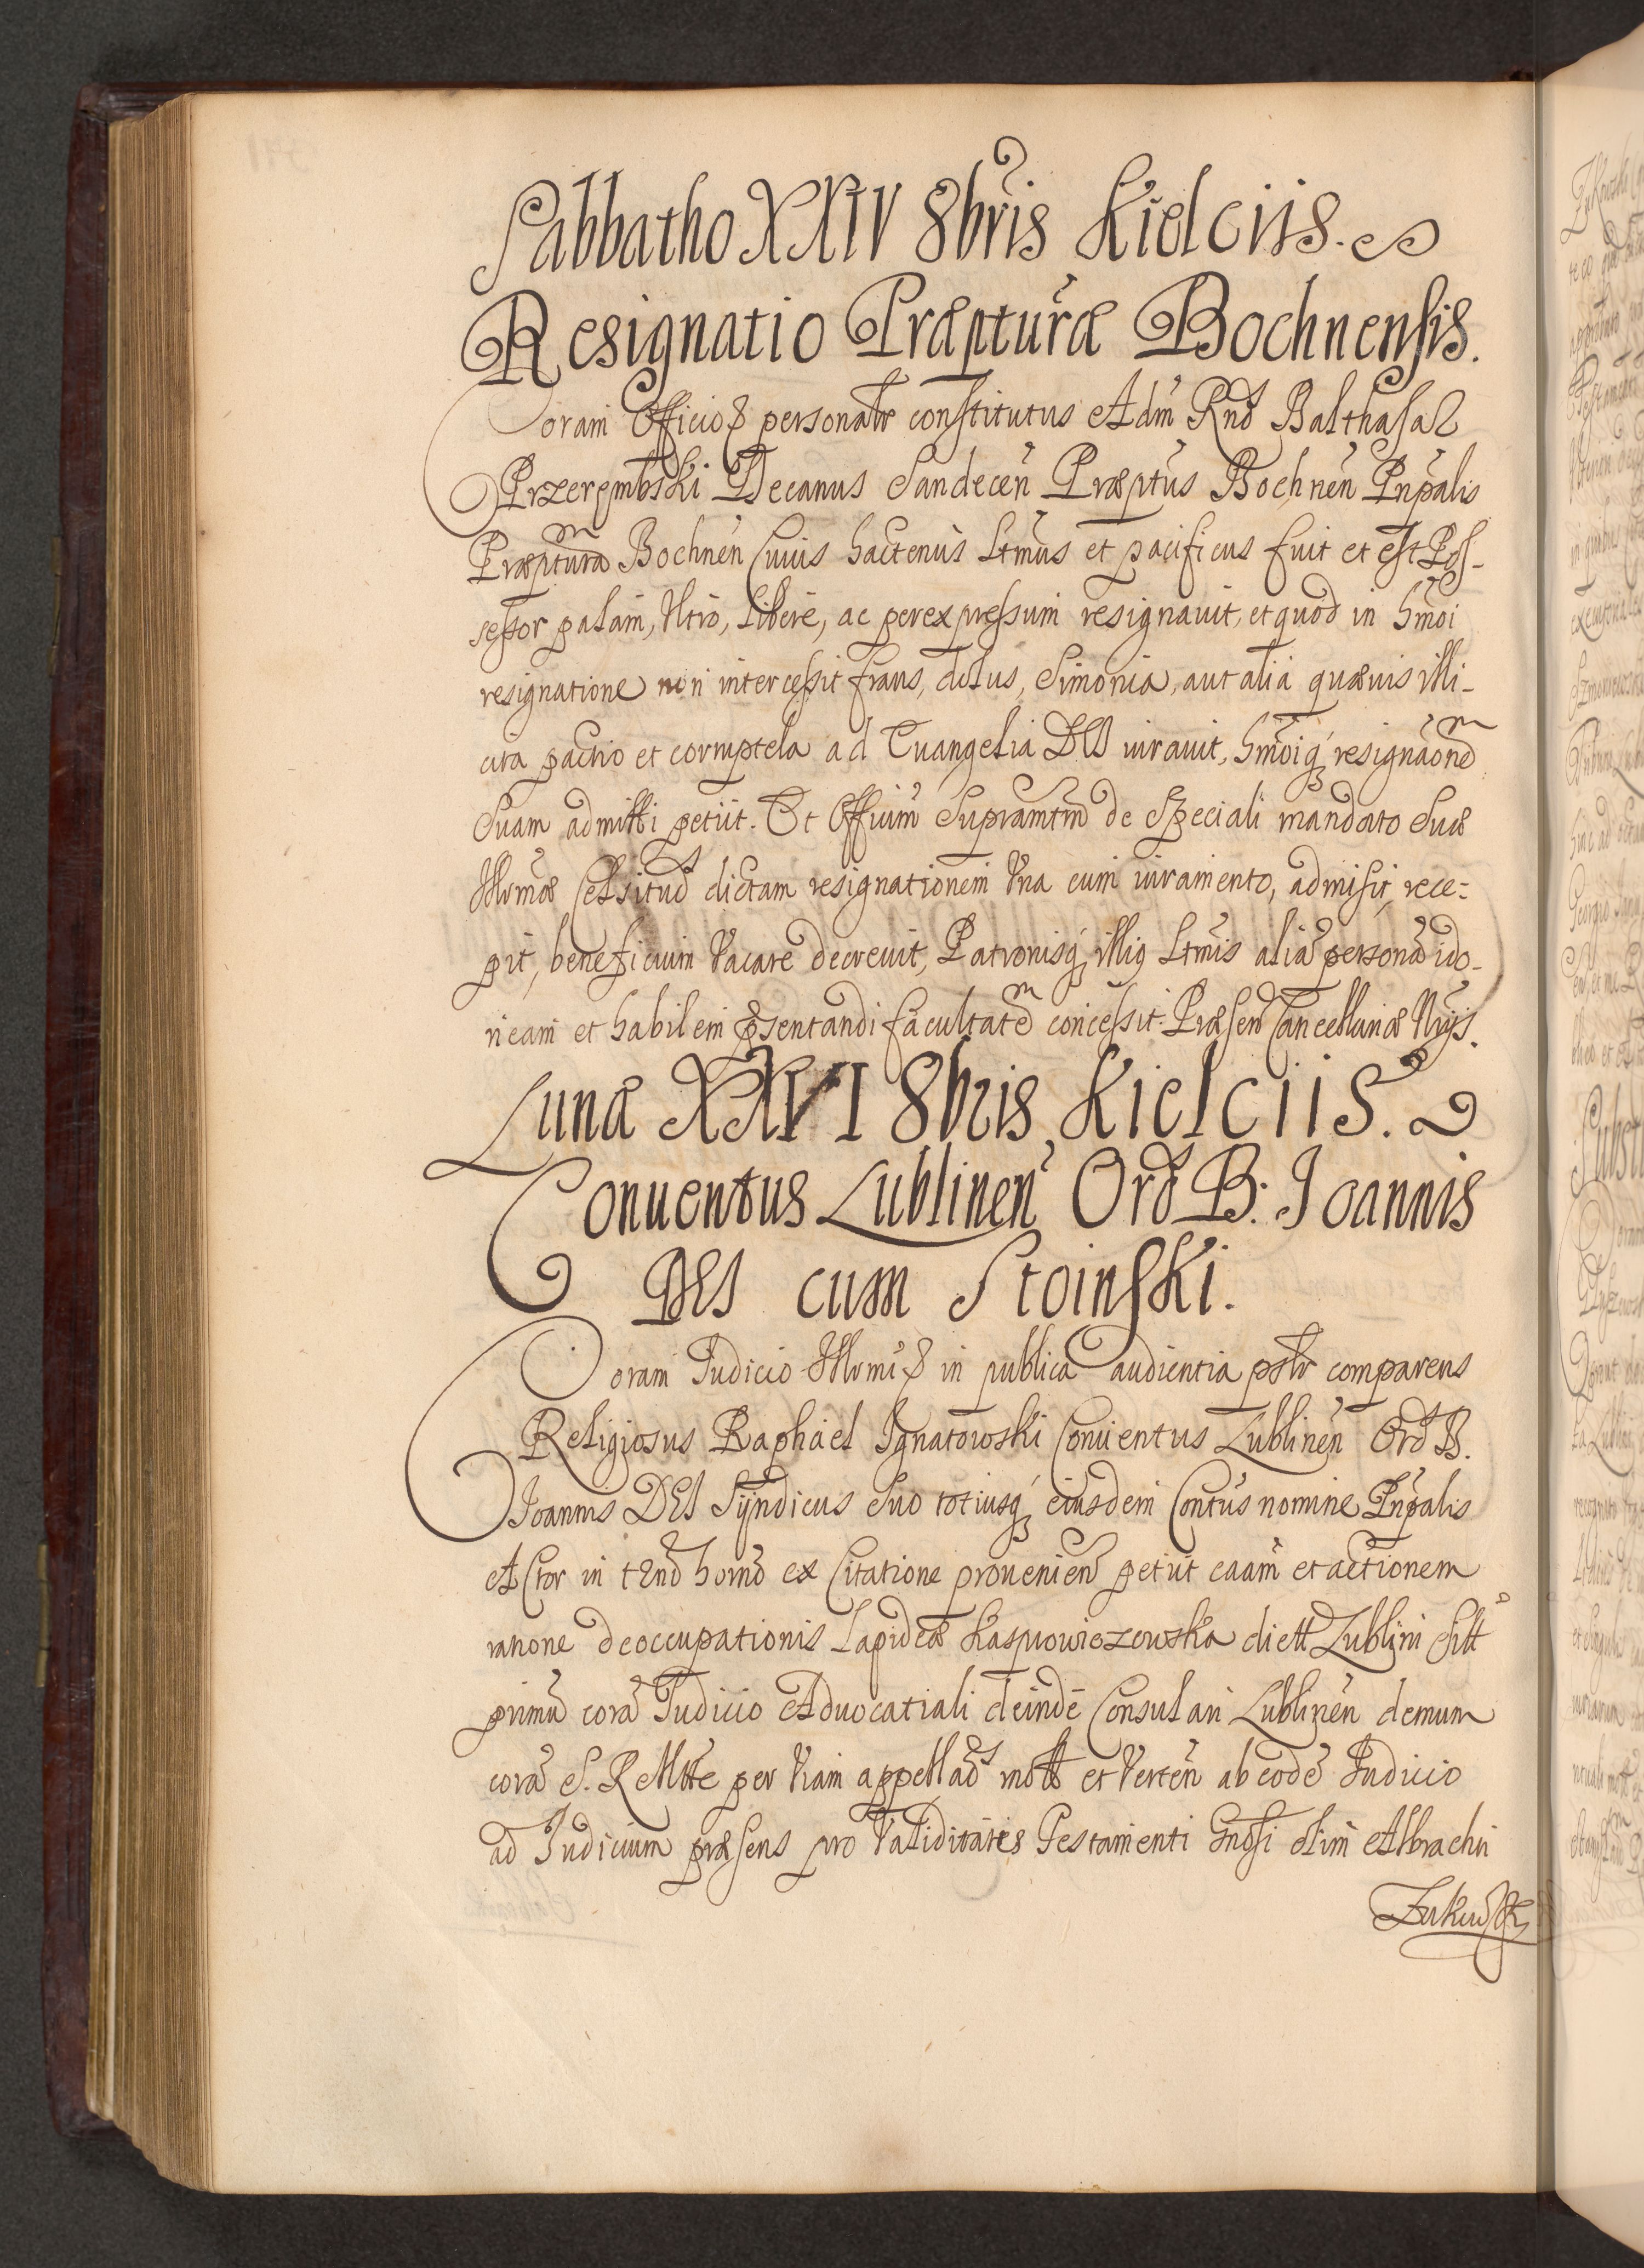 Sabbatho XXIV 8bris Kielciis.
Resignatio Præpturæ Bochnensis.
Coram Officio & personalr constitutus Adm Rnd Balthasar
Przerembski Decanus Sandecen Præptus Bochnen Pnpalis
Præpturam Bochnen Cuius hactenus Ltmus et pacificus fuit et est Pos-
sessor palam, Vltro, Libere, ac per expressum resignauit, et quod in hmoi
resignatione non intercessit fraus, dolus, Simonia, aut alia quæuis illi-
cita pactio et corruptela ad Euangelia DEI iurauit, hmoiq resignaonem
Suam admitti petiit. Et Offium Supramtm de Speciali mandato Suæ
Illrmæ Celsitud dictam resignationem Vna cum iuramento, admisit, rece-
pit, beneficium Vacare decreuit, Patronisq illig Ltmis aliã personã ido-
neam et habilem psentandi facultatem concessit. Præsen Cancellariæ
Lunæ XXVI 8bris Kielciis.
Conuentus Lublinen Ord B. Joannis
DEI cum Stoinski.
Coram Iudicio Illrmi & in publica audientia psolr comparens
Religiosus Raphael Ignatowski Conuentus Lublinen Ord B.
Joannis DEI Syndicus Suo totiusq eiusdem Contus nomine Pnpalis
Actor in tend horno ex Citatione prouenien petiit caam et actionem
ratione deoccupationis Lapideæ Kaspirowiczowska dictt Lublini Sitt
primũ corã Iudicio Aduocatiali deinde Consulari Lublinen demum
corã S. R Mtte per Viam appellaõ mott et Verten ab eodẽ Iudicio
ad Iudicium præsens pro Validitates Testamenti Gnosi olim Albrachti
Zukowski